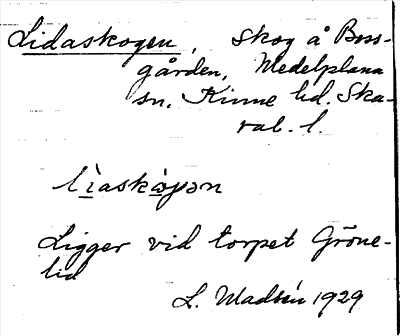 Lidaskogen, skog å Boss-
gården, Medelplana
sn. Kinne hd. Ska-
rab. l.
Ligger vid torpet Gröne-
lid
L. Madsén 1929